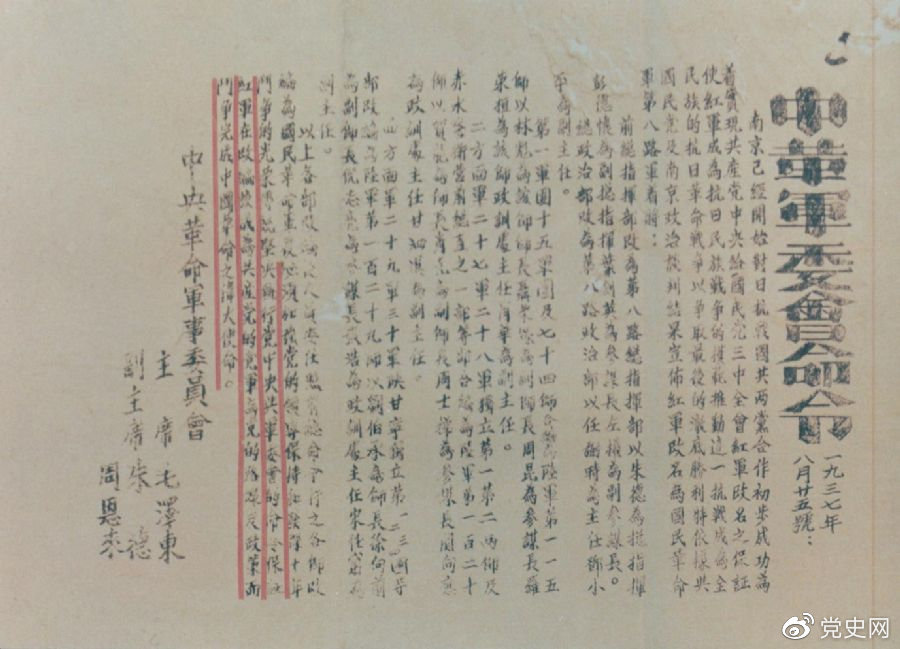 中革軍委會命令
一九三七年
八月廿五號：
南京已經開始對日抗戰國共兩黨合作初步成功為
着實現共產党中央給國民党三中全會紅軍改名之保証
使紅軍成為抗日民族戰争的模範推動這一抗戰成為全
民族的抗日革命戰争以争取最後的澈底勝利特依據共
國民党及南京政治談判結果宣佈紅軍改名為國民革命
軍第八路軍着將：
前總指揮部改為第八路總指揮部以朱德為總指揮
彭德懷為副總指揮葉劍英為參謀長左權為副參謀長。
總政治部改為第八路政治部以任弼時為主任鄧小
平為副主任。
第一軍團十五軍團及七十四師合編為陸軍第一一五
師以林彪為該師師長聶榮臻為副師長周昆為參謀長羅
榮桓為該師政訓處主任肖華為副主任。
二方面軍二十七軍二十八軍獨立第一第二兩師及
赤水警衛營前總直之一部等部合編為陸軍第一百二十
師以賀龍為師長肖克為副師長周士為參謀長關向應
為政訓處主任甘泗淇為副主任。
四方面軍二十九軍三十軍陝甘寧獨立第一二三四等
部改編為陸軍第一百二十九師以劉伯承為師長徐向前
為副師長倪志亮為參謀長張浩為政訓處主任宋任窮為
副主任。
以上各部改編後人員委任照前總命令行之各師改
編為國民革命軍後必須加強党的領導保持和發揮十年
鬥争的光榮傳統堅决執行党中央與軍委會的命令保証
紅軍在改編後成為共產党的党軍為党的路線及政策而
鬥争完成中國革命之偉大使命。
中央革命軍事委員會
主席毛澤東
副主席朱德
周恩来
党史网